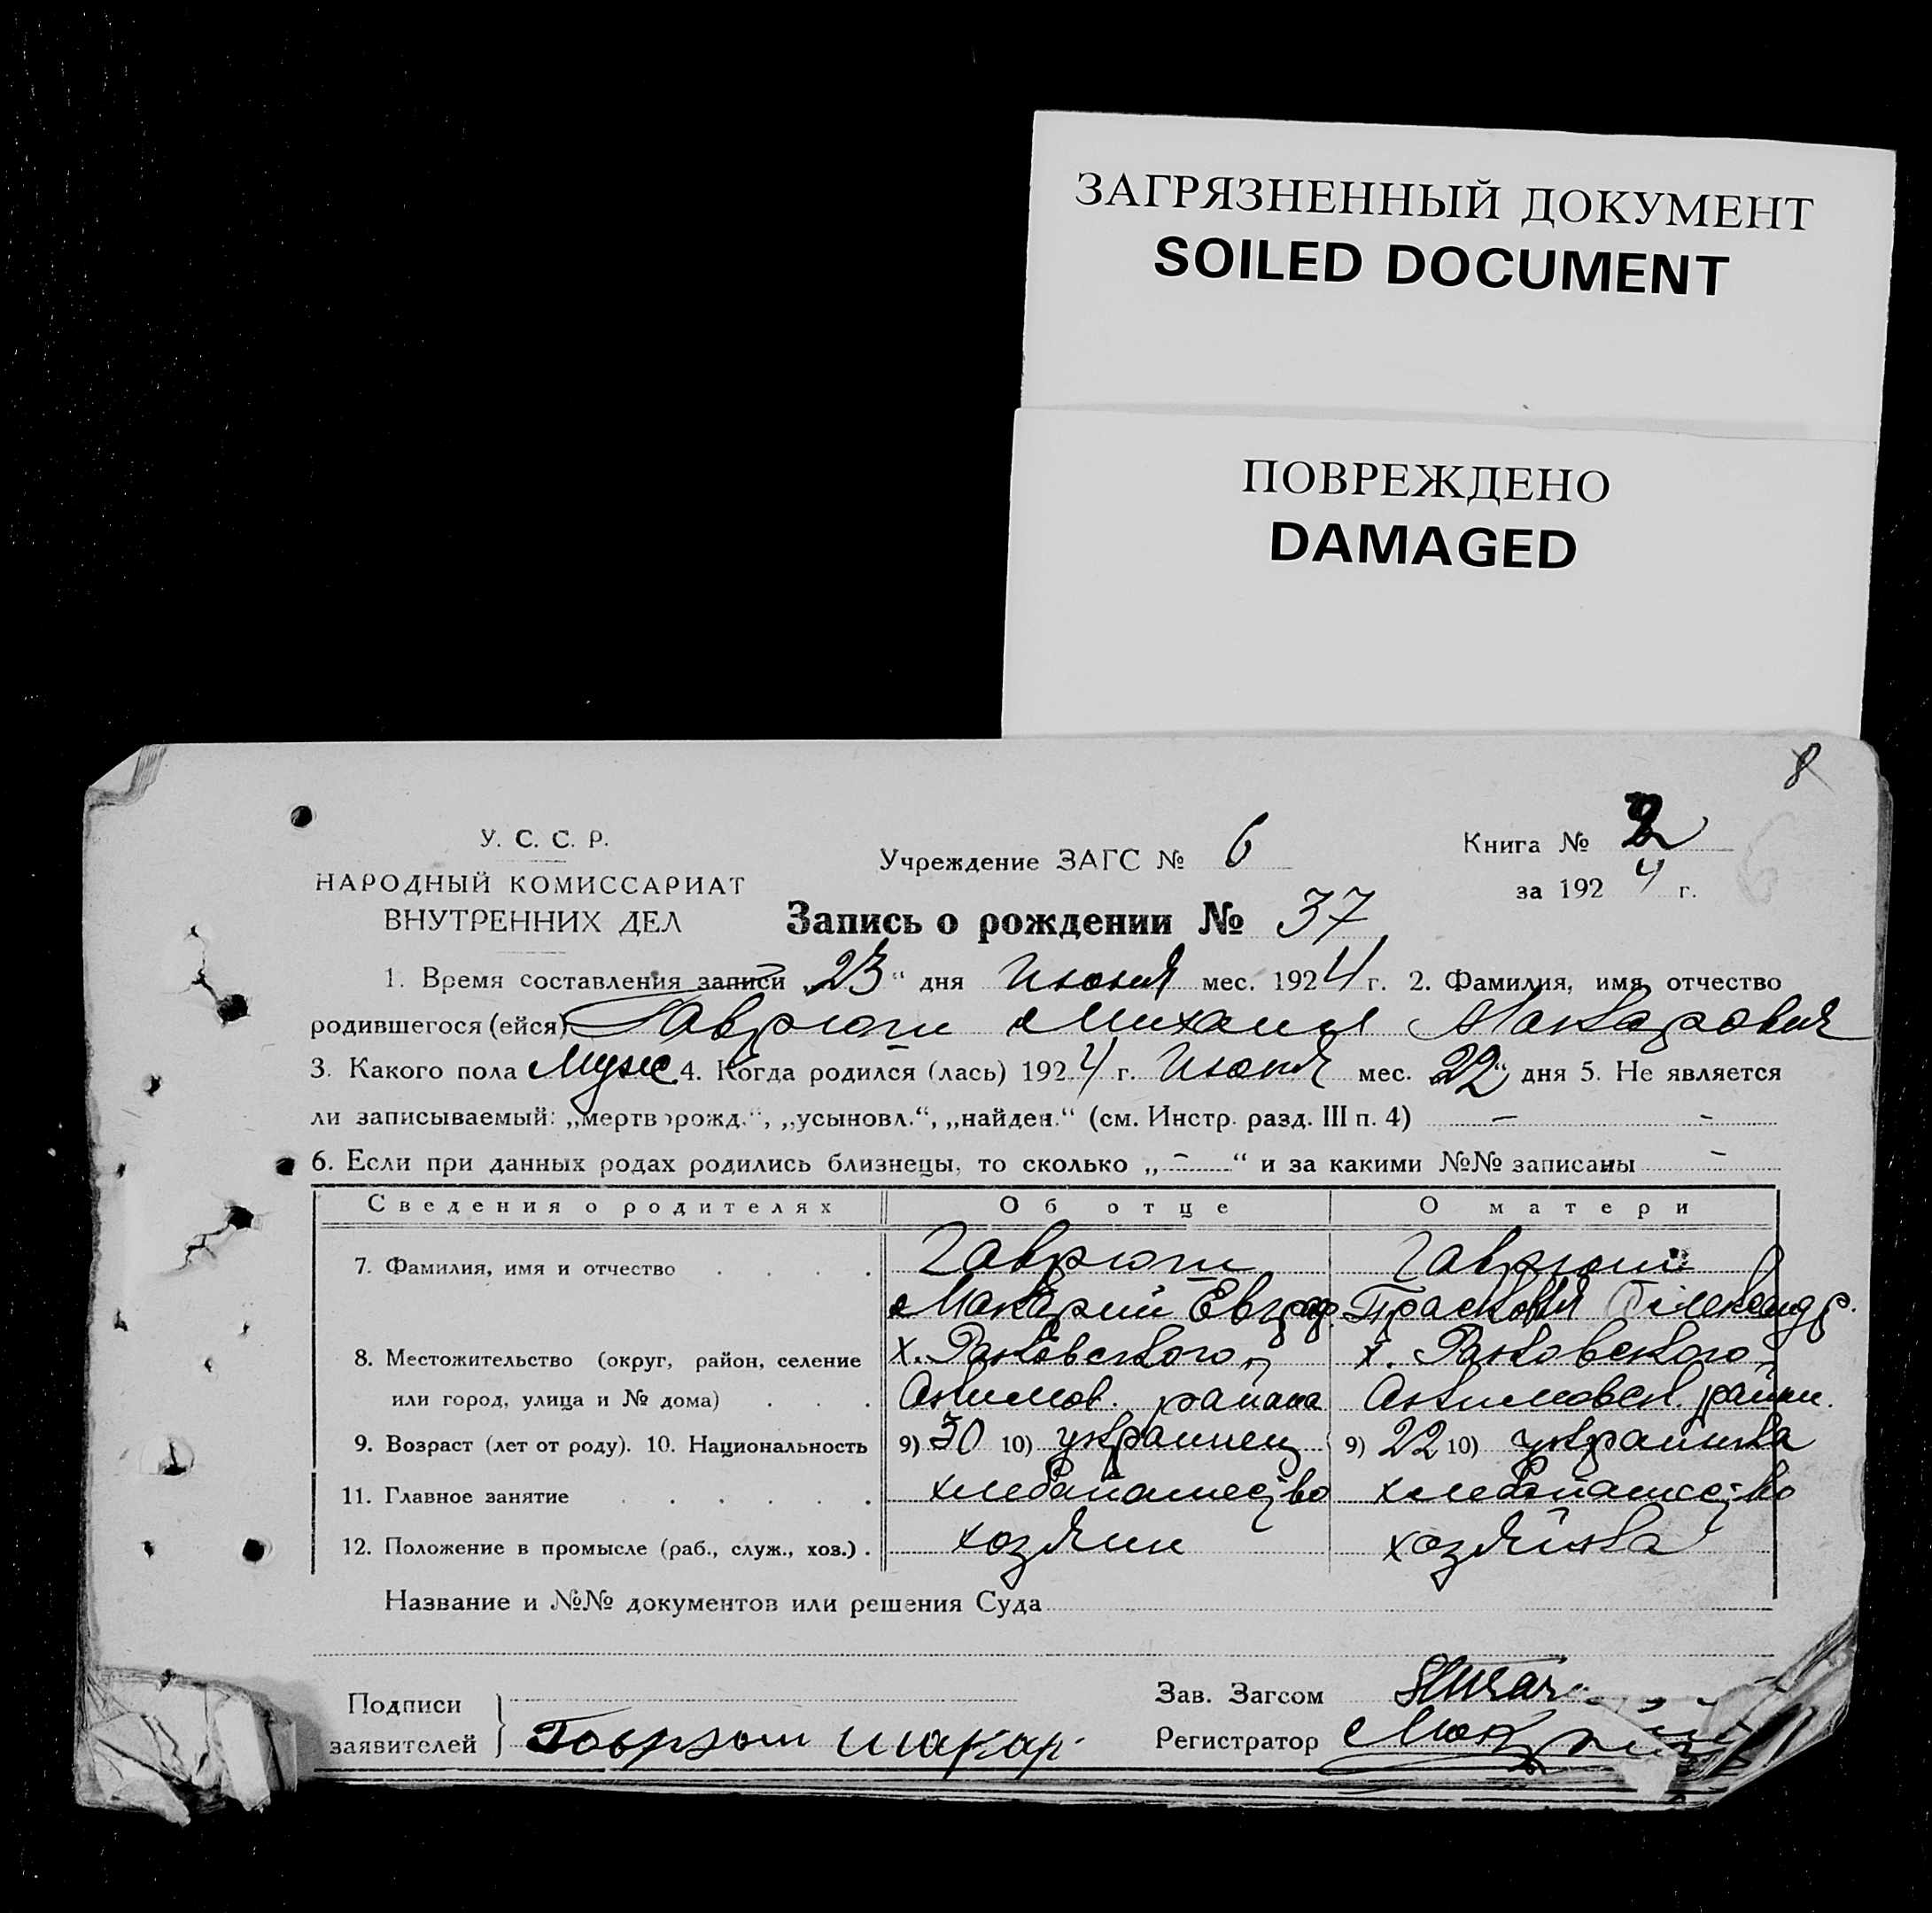 ЗАГРЯЗНЕННЫЙ ДОКУМЕНТ
SOILED DOCUMENT
ПОВРЕЖДЕНО
DAMAGED
8
У. С. С. Р.
НАРОДНЫЙ КОМИССАРИАТ
ВНУТРЕННИХ ДЕЛ
Учреждение ЗАГС № 6
Книга № 2
за 1924 г.
Запись о рождении № 37
1. Время составления записи „23“ дня Июня мес. 1924 г. 2. Фамилия, имя, отчество
родившегося (ейся) Гаврюш Михаил Макарович
3. Какого пола Муж 4. Когда родился (лась) 1924 г. Июня мес. „22“ дня 5. Не является
ли записываемый: „мертворожд.“, „усыновл.“, „найден.“ (см. Инстр. разд. III п. 4) – –
6. Если при данных родах родились близнецы, то сколько „ – “ и за какими №№ записаны –
Сведения о родителях Об отце О матери
7. Фамилия, имя и отчество . . . . Гаврюш Гаврюш
Макарий Евгр. Прасковия Александр.
8. Местожительство (округ, район, селение х. Раковского, х. Раковского,
или город, улица и № дома) . . . Акимов. района Акимовск. район.
9. Возраст (лет от роду). 10. Национальность 9) 30 10) украинец 9) 22 10) украинка
11. Главное занятие . . . . . . хлебопашество хлебопашество
12. Положение в промысле (раб., служ., хоз.) . хозяин хозяйка
Название и №№ документов или решения Суда
Подписи
заявителей } Говрюш Макар
Зав. Загсом
Регистратор